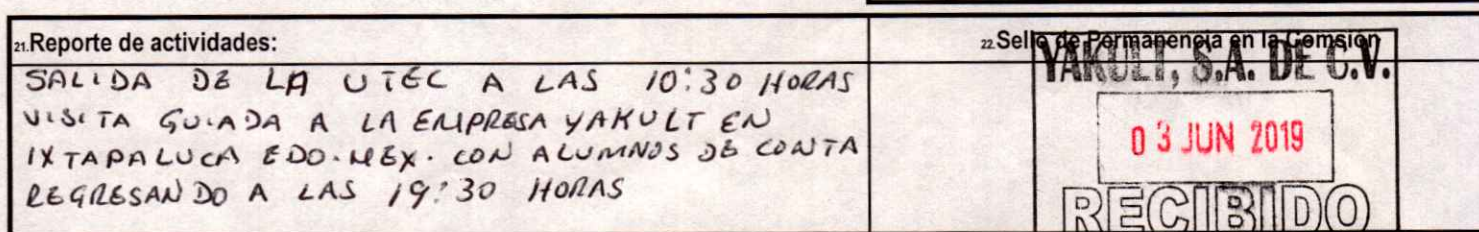 21.Reporte de actividades:
SALIDA DE LA UTEC A LAS 10:30 HORAS
VISITA GUIADA A LA EMPRESA YAKULT EN
IXTAPALUCA EDO. MEX. CON ALUMNOS DE CONTA
REGRESANDO A LAS 19:30 HORAS
22.Sello de Permanencia en la Comsion
YAKULT, S.A. DE C.V.
03 JUN 2019
RECIBIDO